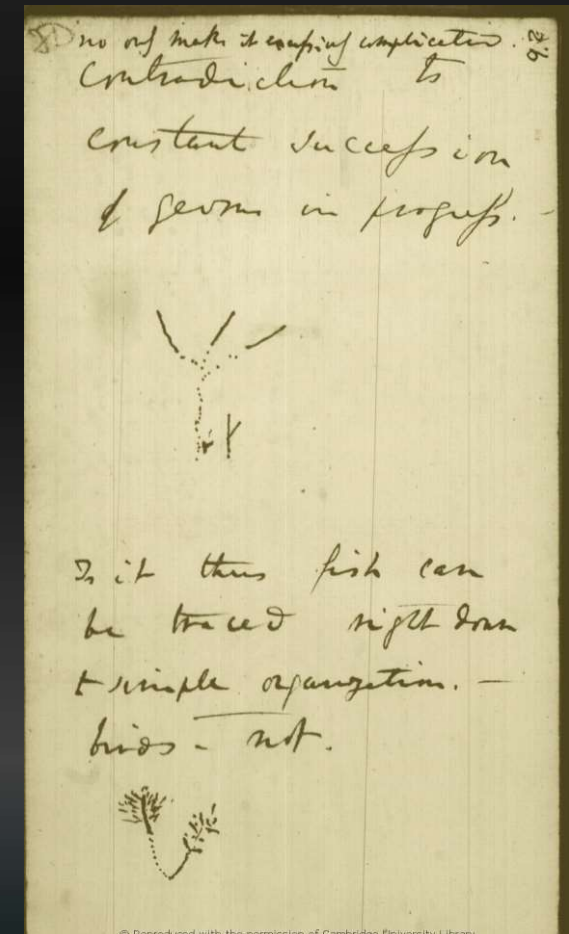 26
no only makes it excessively complicated.
Contradiction to
constant succession
of germs in progress. —
Is it thus fish can
be traced right down
to simple organization. —
birds — not.
© Reproduced with the permission of Cambridge University Library